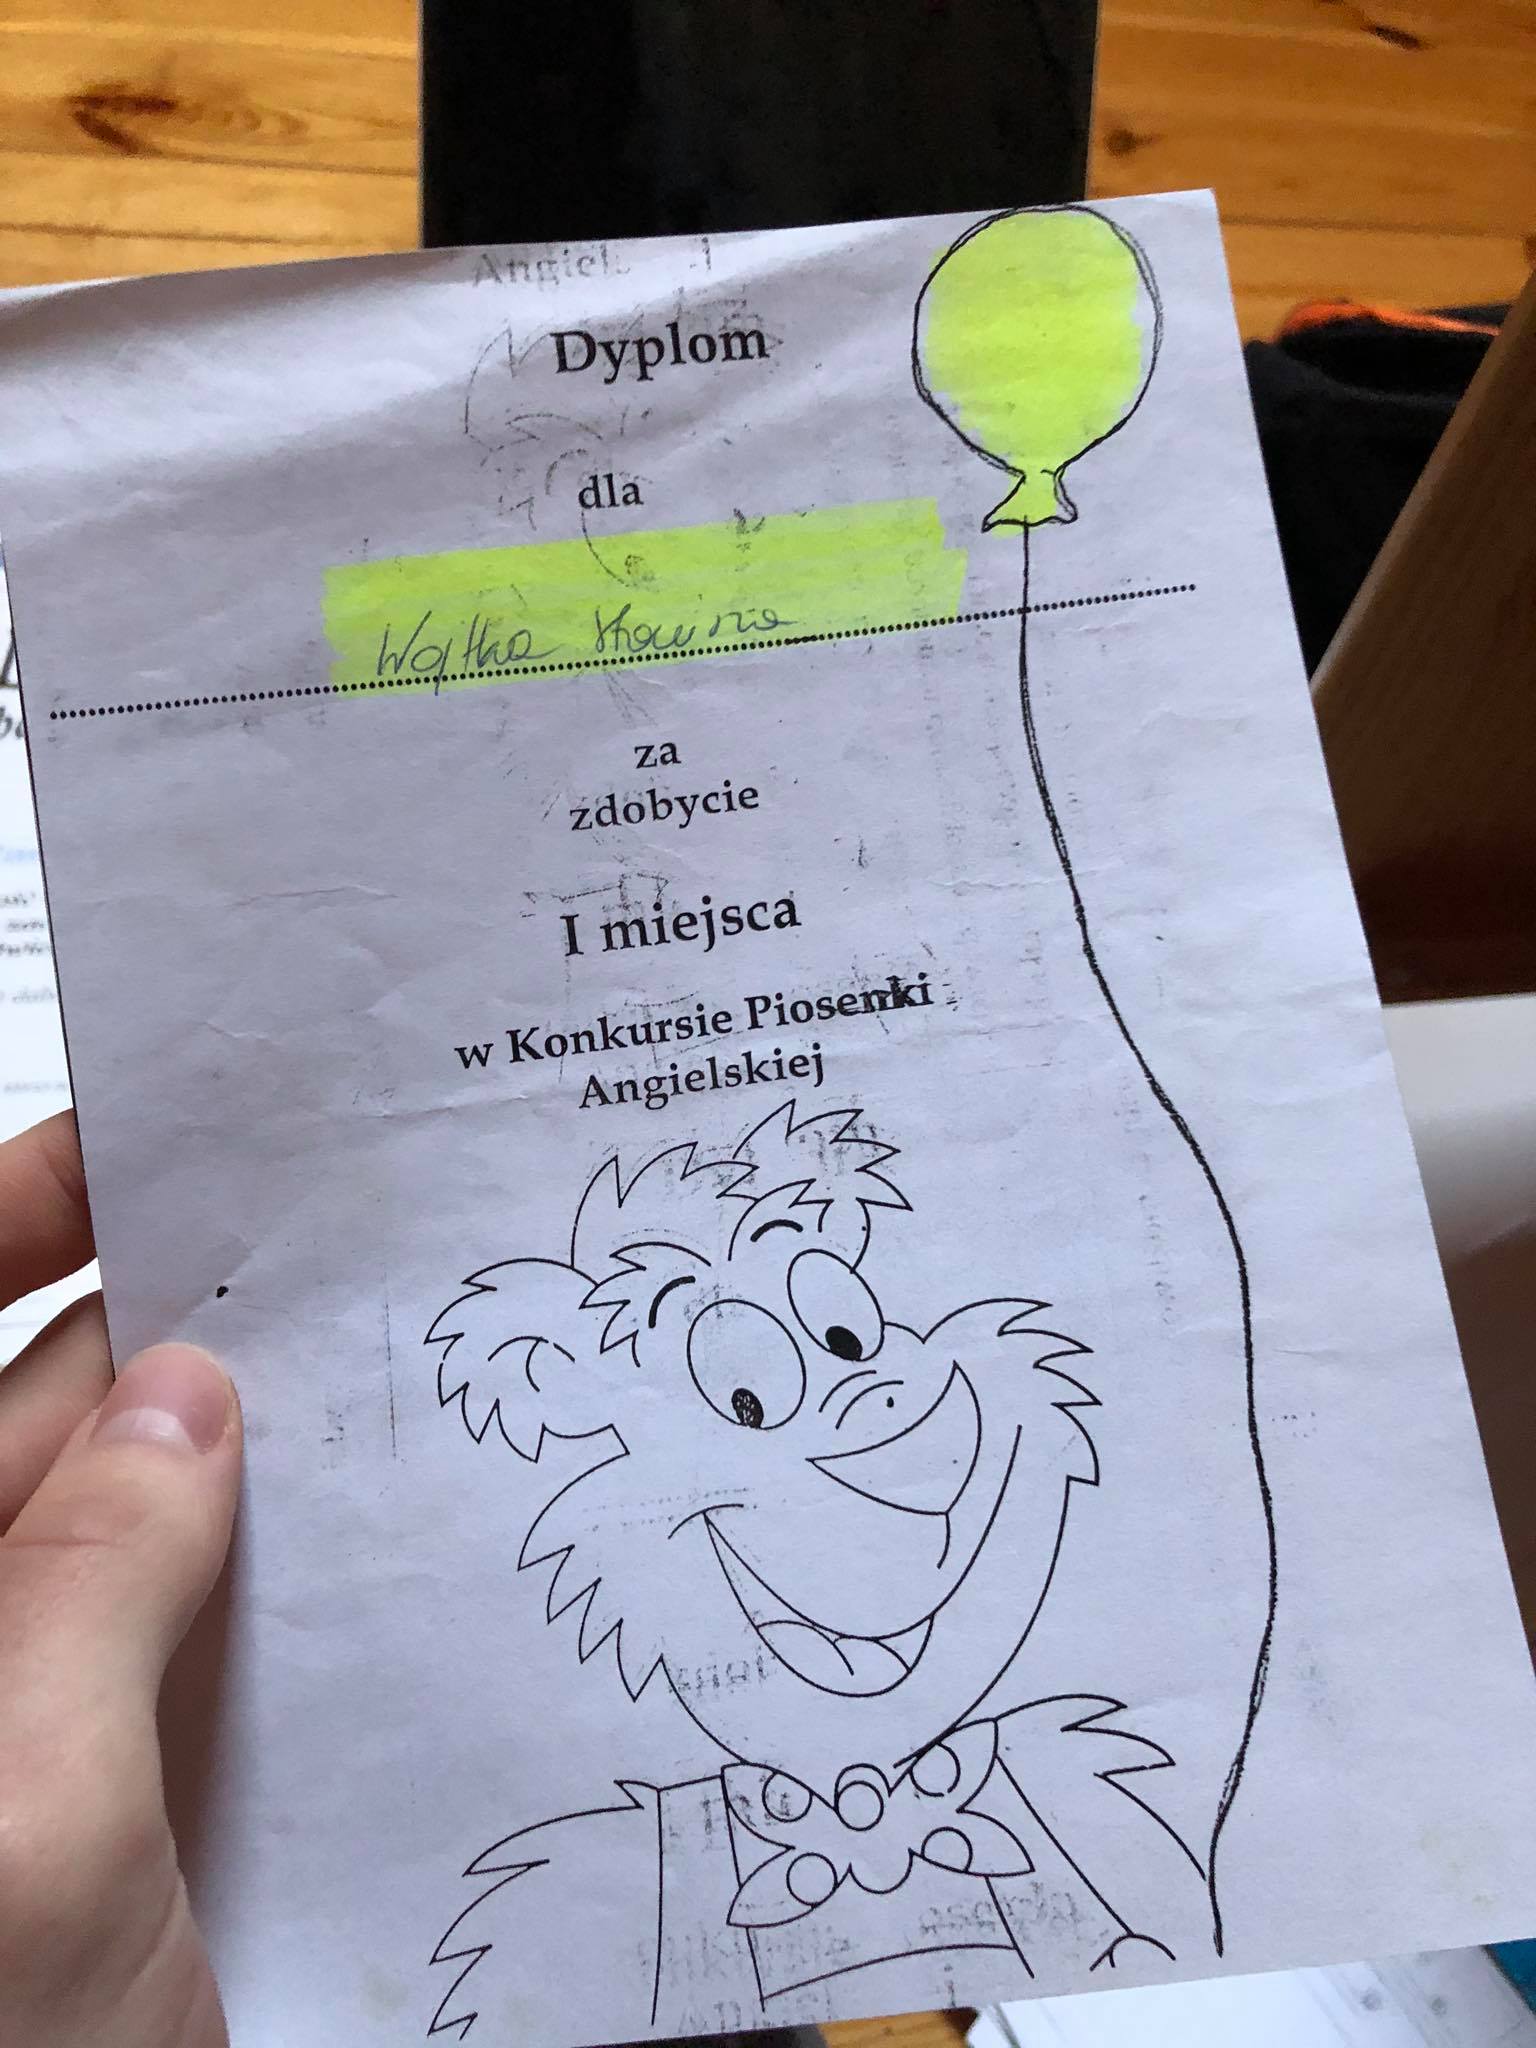 Dyplom
dla
Wojtka
za
zdobycie
I miejsca
w Konkursie Piosenki
Angielskiej